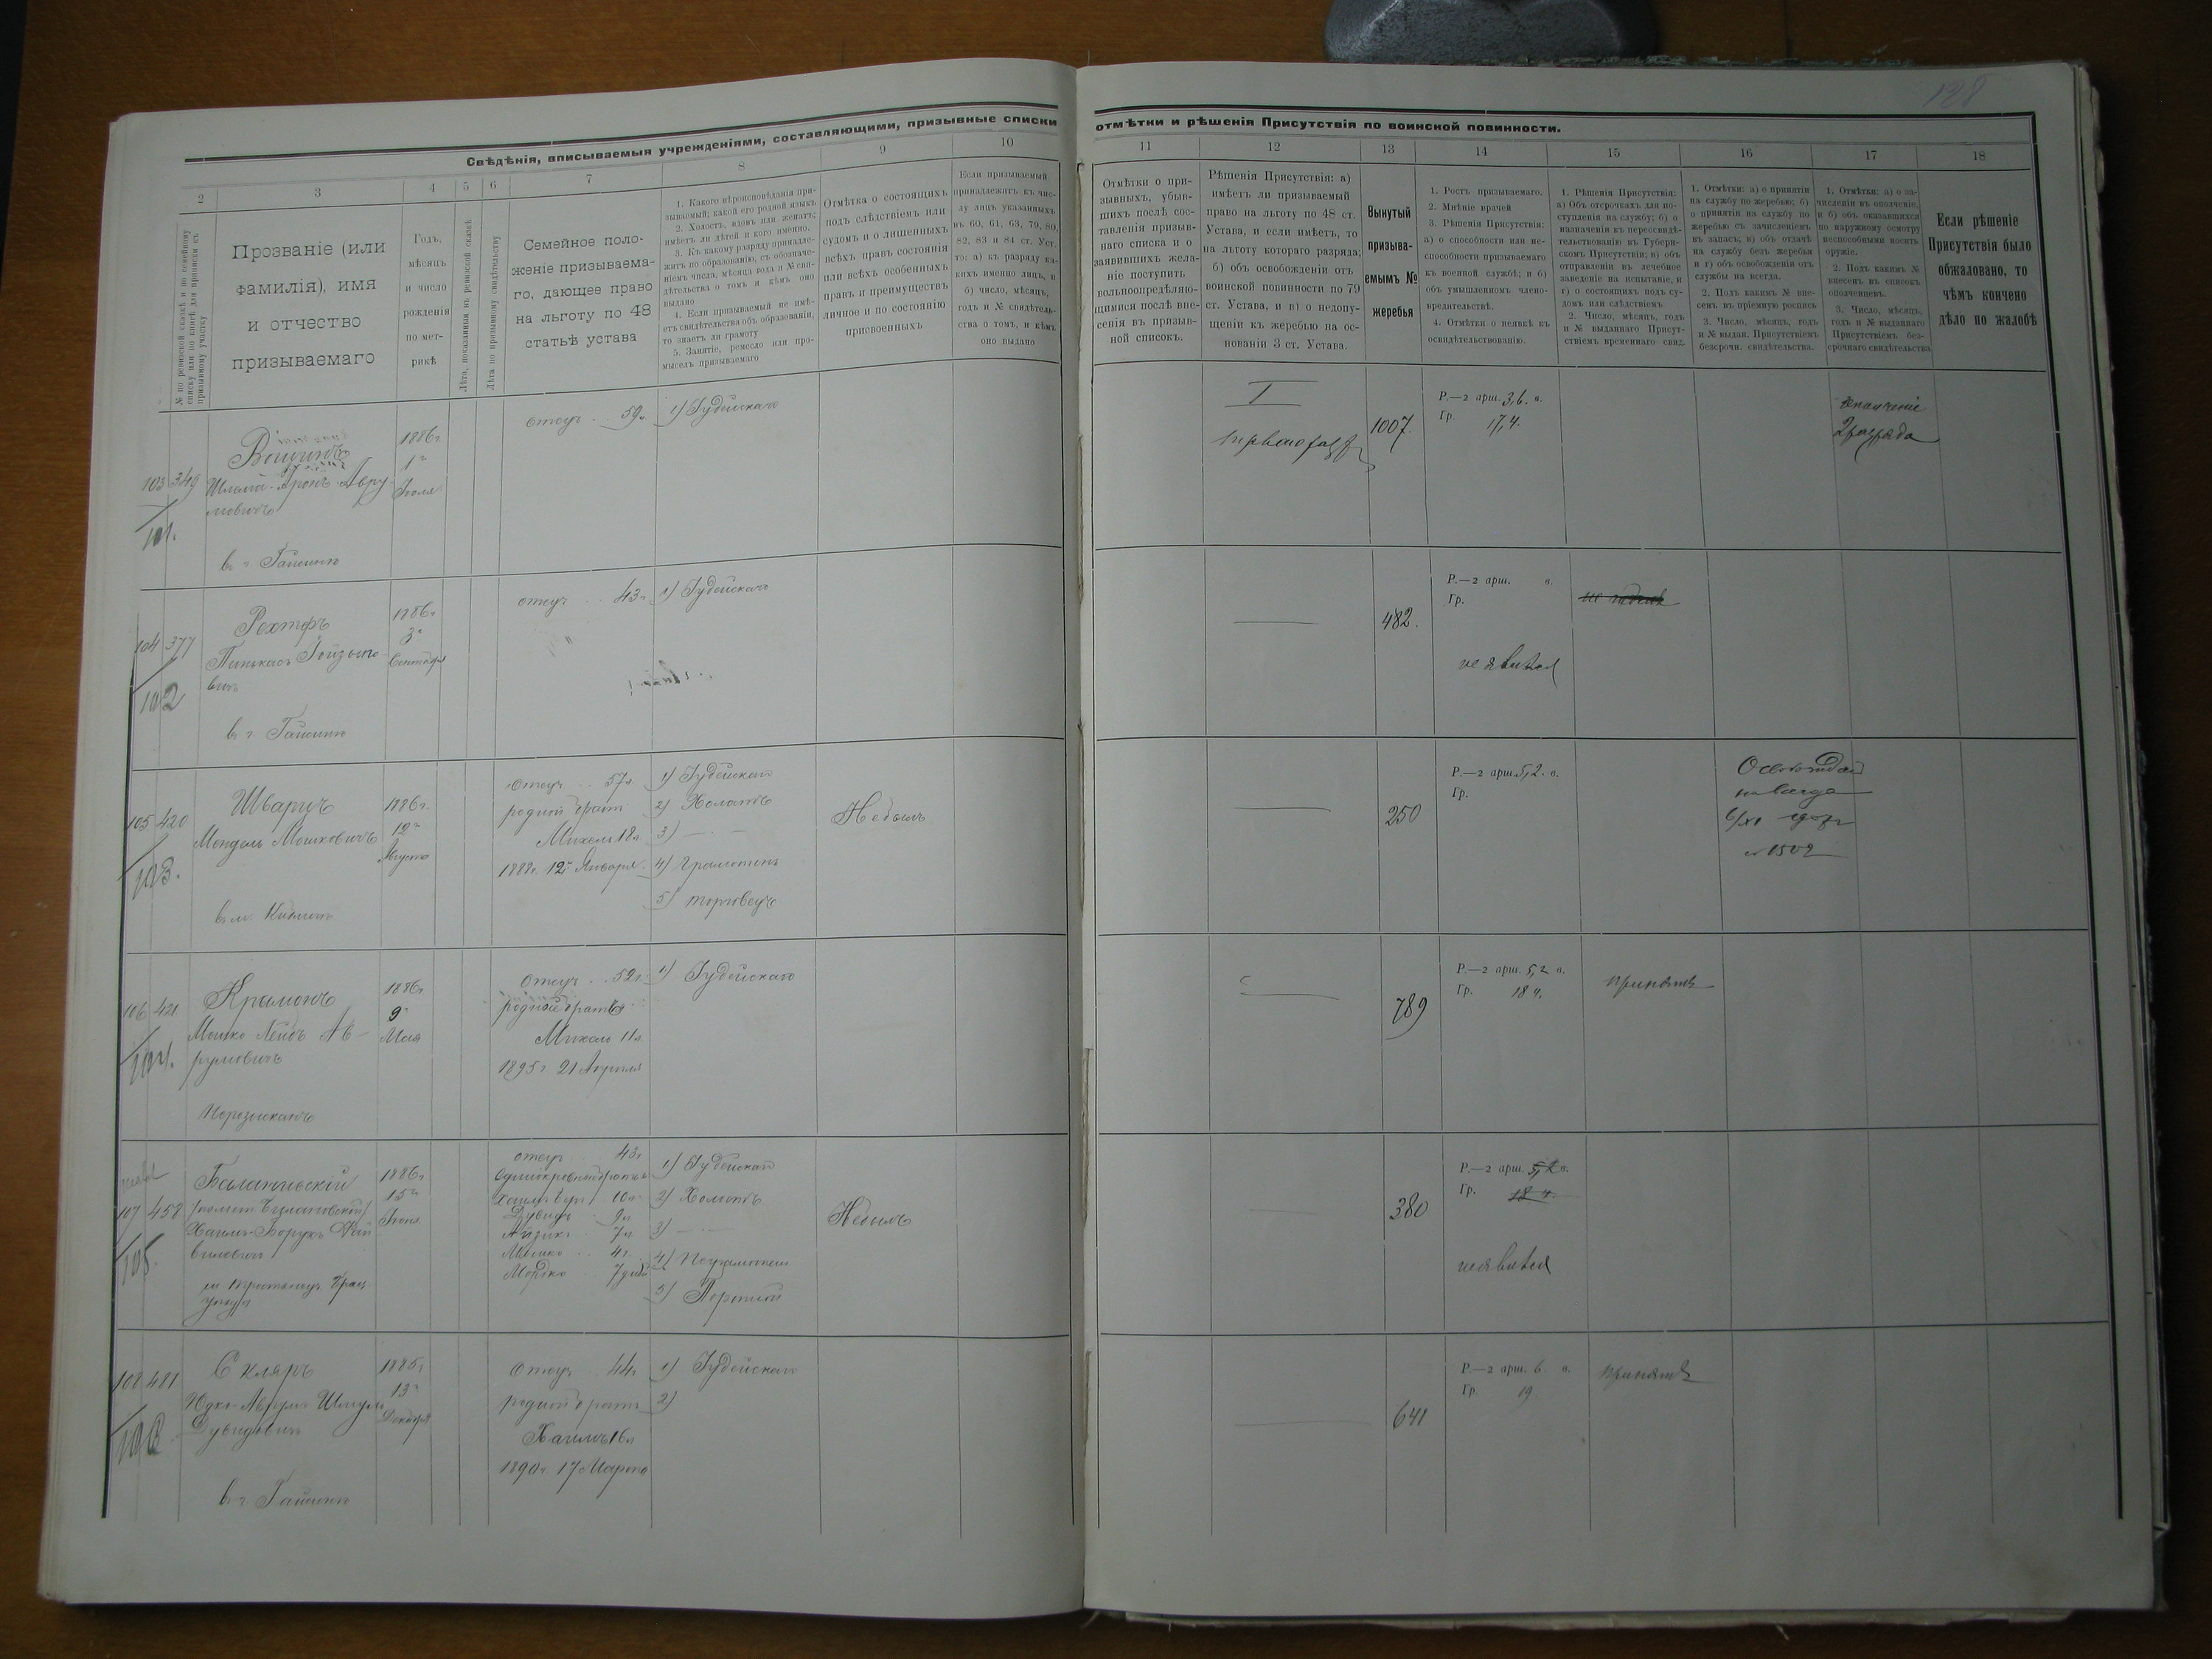 128
Свѣдѣнія, вписываемыя учрежденіями, составляющими, призывные списки
отмѣтки и рѣшенія Присутствія по воинской повинности.
2 3 4 5 6 7 8 9 10
11 12 13 14 15 16 17 18
№ по ревизской сказкѣ и по семейному
списку или по книгѣ для приписки къ
призывному участку
Прозваніе (или
фамилія), имя
и отчество
призываемаго
Годъ,
мѣсяцъ
и число
рожденія
по мет-
рикѣ
Лѣта, показанныя въ ревизской сказкѣ
Лѣта по призывному свидѣтельству
Семейное поло-
женіе призываема-
го, дающее право
на льготу по 48
статьѣ устава
1. Какого вѣроисповѣданія при-
зываемый; какой его родной языкъ
2. Холостъ, вдовъ или женатъ;
имѣетъ ли дѣтей и кого именно.
3. Къ какому разряду принадле-
житъ по образованію, съ обозначе-
ніемъ числа, мѣсяца года и № сви-
дѣтельства о томъ и кѣмъ оно
выдано
4. Если призываемый не имѣ-
етъ свидѣтельства объ образованіи,
то знаетъ ли грамоту
5. Занятіе, ремесло или про-
мыселъ призываемаго
Отмѣтка о состоящихъ
подъ слѣдствіемъ или
судомъ и о лишенныхъ
всѣхъ правъ состоянія
или всѣхъ особенныхъ
правъ и преимуществъ
личное и по состоянію
присвоенныхъ
Если призываемый
принадлежитъ къ чис-
лу лицъ указанныхъ
въ 60, 61, 63, 79, 80,
82, 83 и 84 ст. Уст.
то: а) къ разряду ка-
кихъ именно лицъ, и
б) число, мѣсяцъ,
годъ и № свидѣтель-
ства о томъ, и кѣмъ
оно выдано
Отмѣтки о при-
зывныхъ, убыв-
шихъ послѣ сос-
тавленія призыв-
наго списка и о
заявившихъ жела-
ніе поступить
вольноопредѣляю-
щимися послѣ вне-
сенія въ призыв-
ной списокъ.
Рѣшенія Присутствія: а)
имѣетъ ли призываемый
право на льготу по 48 ст.
Устава, и если имѣетъ, то
на льготу котораго разряда;
б) объ освобожденіи отъ
воинской повинности по 79
ст. Устава, и в) о недопу-
щеніи къ жеребью на ос-
нованіи 3 ст. Устава.
Вынутый
призыва-
емымъ №
жеребья
1. Ростъ призываемаго.
2. Мнѣніе врачей
3. Рѣшенія Присутствія:
а) о способности или не-
способности призываемаго
къ военной службѣ; и б)
объ умышленномъ члено-
вредительствѣ.
4. Отмѣтки о неявкѣ къ
освидѣтельствованію.
1. Рѣшенія Присутствія:
а) Объ отсрочкахъ для по-
ступленія на службу; б) о
назначеніи къ переосвидѣ-
тельствованію въ Губерн-
скомъ Присутствіи; в) объ
отправленіи въ лечебное
заведеніе на испытаніе, и
г) о состоящихъ подъ су-
домъ или слѣдствіемъ
2. Число, мѣсяцъ, годъ
и № выданнаго Присут-
ствіемъ временнаго свид.
1. Отмѣтки: а) о принятіи
на службу по жеребью; б)
о принятіи на службу по
жеребью съ зачисленіемъ
въ запасъ; в) объ отдачѣ
на службу безъ жеребья
и г) объ освобожденіи отъ
службы на всегда.
2. Подъ какимъ № вне-
сенъ въ пріемную роспись
3. Число, мѣсяцъ, годъ
и № выдан. Присутствіемъ
безсрочн. свидѣтельства.
1. Отмѣтки: а) о за-
численіи въ ополченіе,
и б) объ оказавшихся
по наружному осмотру
неспособными носить
оружіе.
2. Подъ какимъ №
внесенъ въ списокъ
ополченцевъ.
3. Число, мѣсяцъ,
годъ и № выданнаго
Присутствіемъ без-
срочнаго свидѣтельства
Если рѣшеніе
Присутствія было
обжаловано, то
чѣмъ кончено
дѣло по жалобѣ
103 349
101.
Шлема-Аронъ Авру-
мовичъ
в г. Гайсинѣ
1886 г
1го
Іюля
отецъ .. 59 л
1) Іудейскаго
I
перваго разр
1007.
Р.—2 арш. 3,6. в.
Гр. 17,4.
2 разряда
104 377
102
Рохтеръ
Пинькасъ Іойзыпо-
вичъ
в г. Гайсинѣ
1886 г
3го
Сентября
отецъ .. 43 л
1) Іудейскаго
482.
Р.—2 арш. в.
Гр.
не явился
105 420
103.
Шварцъ
Мендель Мошковичъ
в м. Кублич
1886 г.
12го
Августа
отецъ .. 57 л.
родной братъ
Михель 18 л.
1888 г. 12го Января
1) Іудейскаго
2) Холостъ
3) —
4) Грамотенъ
5) торговецъ
Небылъ
250
Р.—2 арш. 5,2. в.
Гр.
Освобожден
на всегда
№ 1502
106 421
104.
Крымонъ
Мошко Лейбъ Ав-
румовичъ
Неразысканъ
1886 г
9го
Мая
Отецъ .. 52 г.
родной братъ
Михель 11 л
1895 г 21 Апреля
1) Іудейскаго
789
Р.—2 арш. 5,2 в.
Гр. 18 ч.
принятъ
107 458
105.
Хаимъ-Борухъ Фай-
виловичъ
1886 г
15го
Іюня
отецъ 43 г
Дувидъ .. 9 л
Айзикъ .. 7 л
Мошко .. 4 г.
Мордко .. 7 дней
1) Іудейскаго
2) Холостъ
3) —
4) Неграмотенъ
5) Портной
Небылъ
380
Р.—2 арш. 5,2 в.
Гр. 18 ч.
не явился
108 481
106
Скляръ
Юдко-Аврумъ Шмуль
Дувидовичъ
в г. Гайсинѣ
1885 г
13го
Декабря
Отецъ .. 44 г
родной братъ
Хаимъ 16 л
1890 г. 17 Марта
1) Іудейскаго
2)
641
Р.—2 арш. 6. в.
Гр. 19.
принятъ